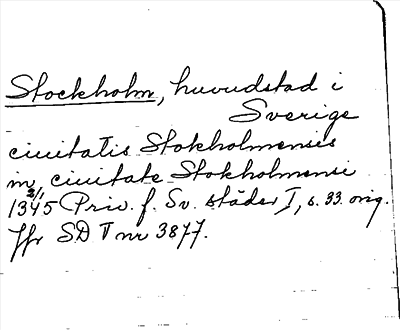 Stockholm, huvudstad i
Sverige
ciuitatis Stokholmensis
in ciuitate Stokholmensi
1345 2/1, Priv. f. Sv. städer I, s. 33. orig.
Jfr SD V nr 3877.